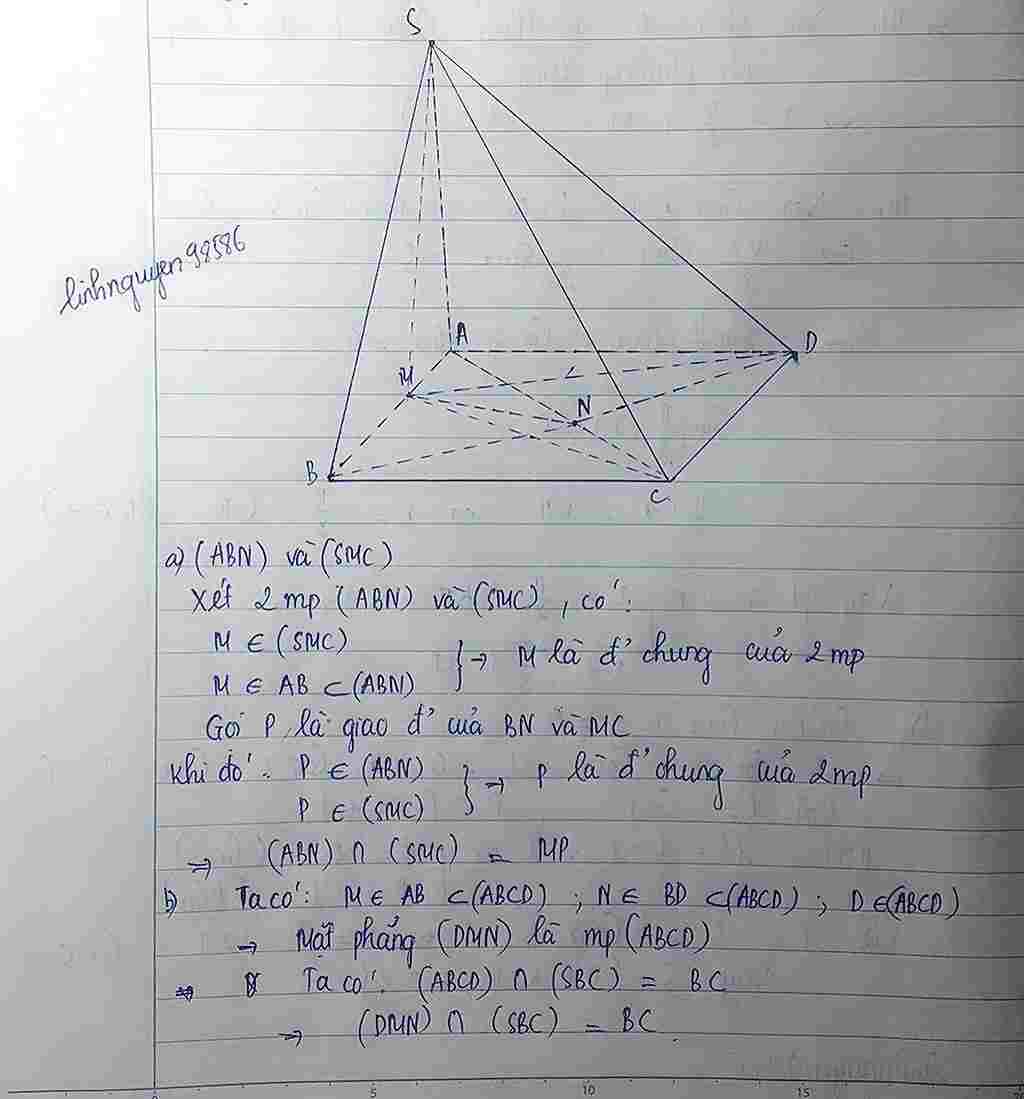 S
linhnguyen98586
A
D
M
N
B
C
a) (ABN) và (SMC)
Xét 2 mp (ABN) và (SMC), có:
M ∈ (SMC)
M ∈ AB ⊂ (ABN) } → M là đ' chung của 2 mp
Gọi P là giao đ' của BN và MC
Khi đó: P ∈ (ABN)
P ∈ (SMC) } → P là đ' chung của 2mp
⇒ (ABN) ∩ (SMC) = MP
b) Ta có: M ∈ AB ⊂ (ABCD) ; N ∈ BD ⊂ (ABCD) ; D ∈ (ABCD)
→ Mặt phẳng (DMN) là mp (ABCD)
⇒ Ta có: (ABCD) ∩ (SBC) = BC
⇒ (DMN) ∩ (SBC) = BC
5 10 15